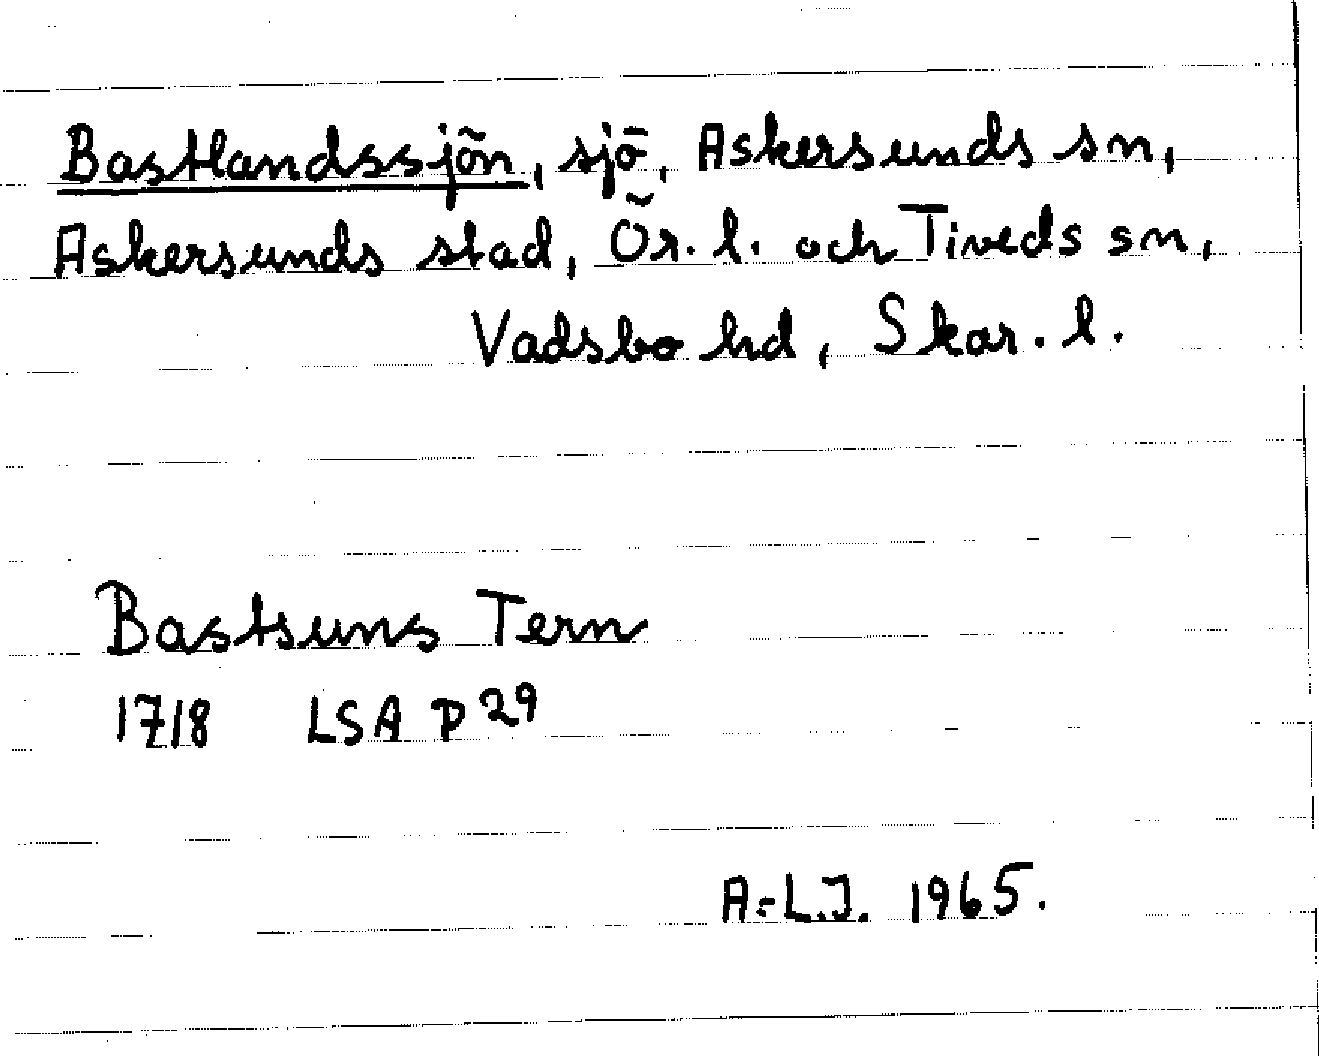 Bastlandssjön, sjö, Askersunds sn,
Askersunds stad, Ör. l. och Tiveds sn,
Vadsbo hd, Skar. l.
Bastsuns Tern
1718 LSA P 29
A-L.J. 1965.